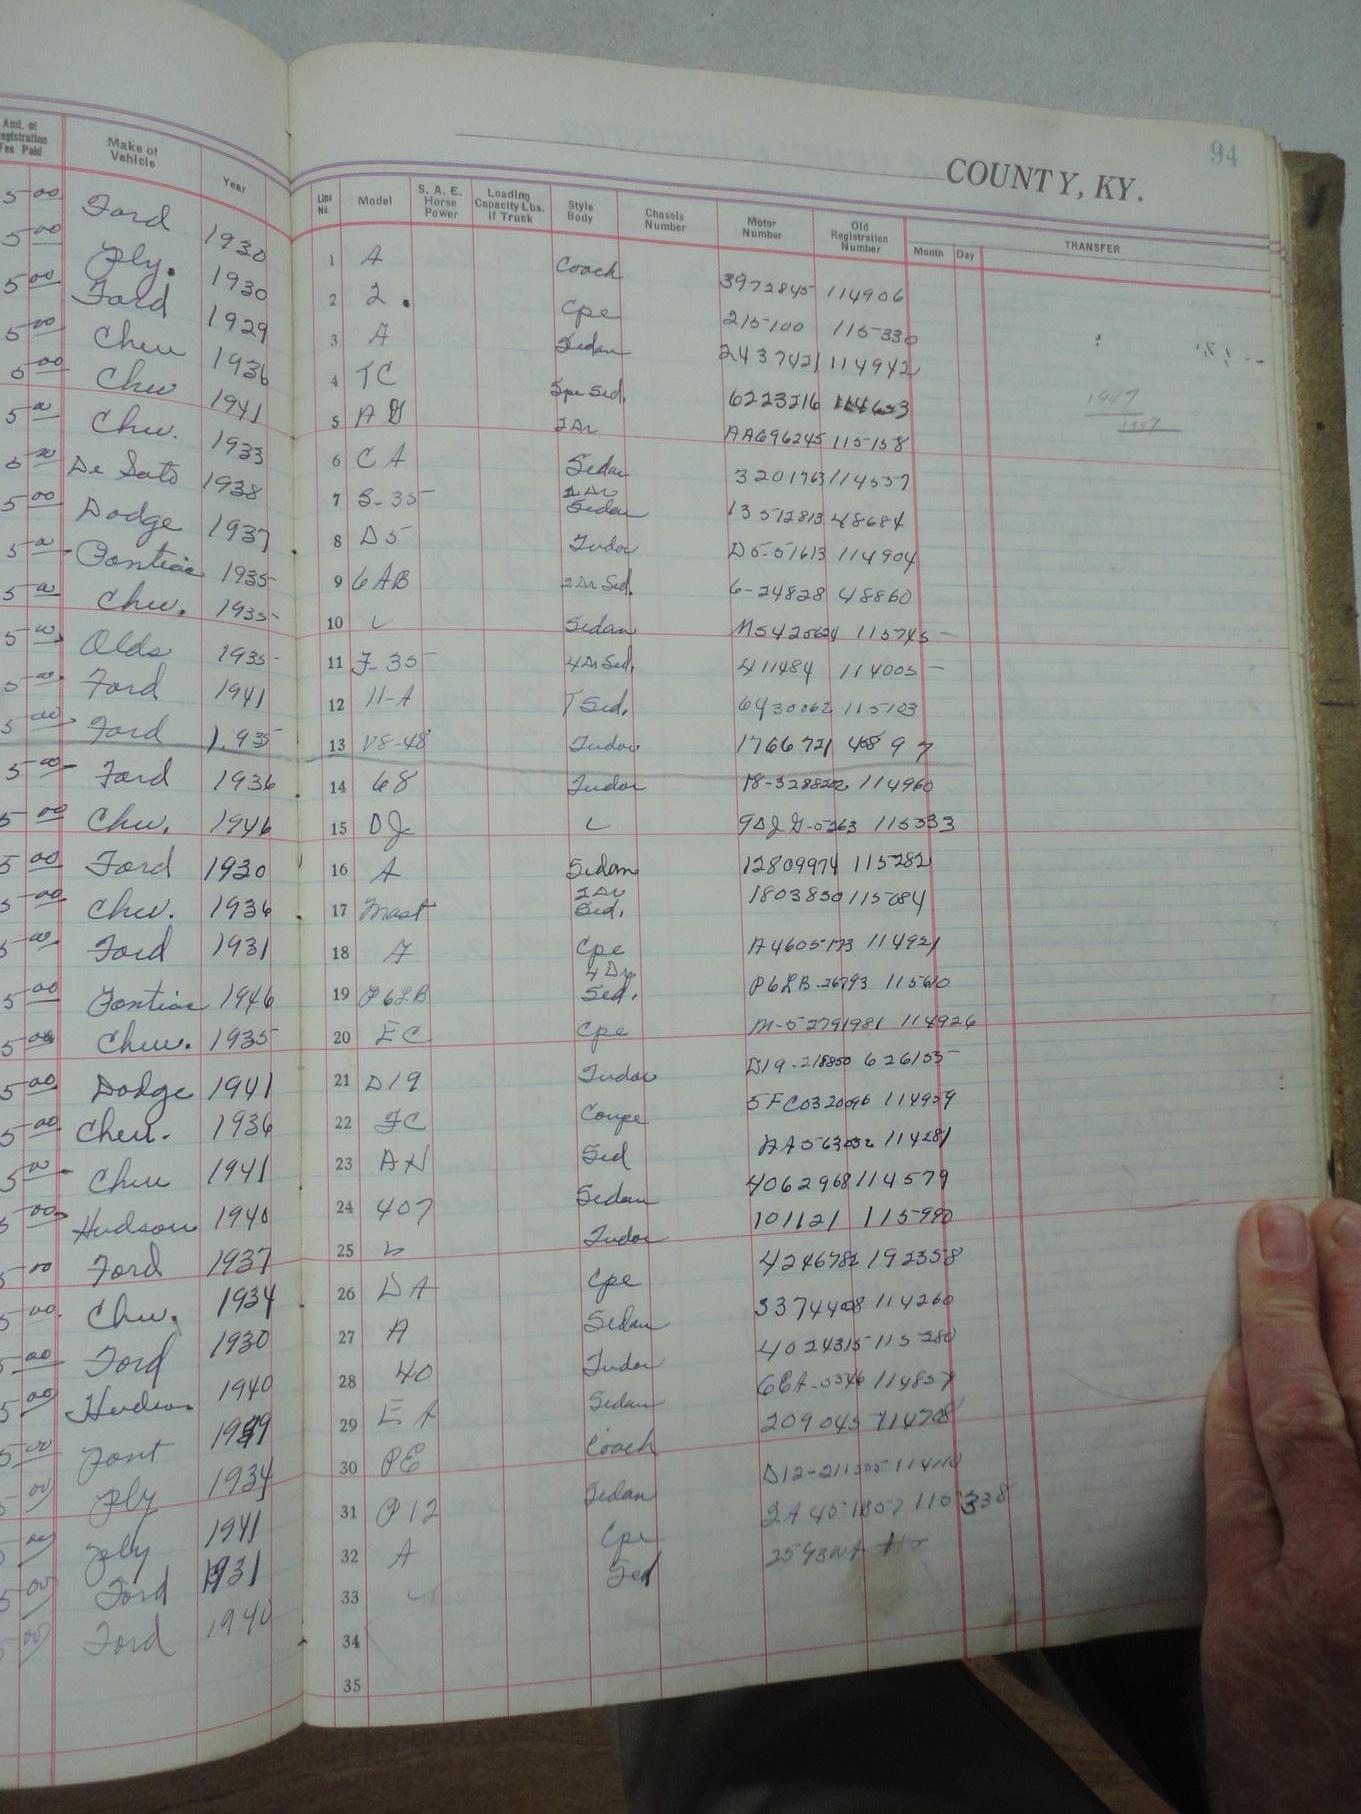 94
COUNTY, KY.
Amt. of Registration Fee Paid | Make of Vehicle | Year | Line No. | Model | S. A. E. Horse Power | Loading Capacity Lbs. if Truck | Style Body | Chassis Number | Motor Number | Old Registration Number | Month | Day | TRANSFER
5 00 Ford 1930 1 A Coach 3972845 114906
5 00 Ply. 1930 2 2. Cpe 215100 115330
5 00 Ford 1929 3 A Sedan 2437421 114942
5 00 Chev 1936 4 TC Spe Sed. 6223216
5 00 Chev 1941 5 A G 2 Dr AA696245 115158
1947
1947
5 00 Chev. 1933 6 C A Sedan 3201763 114537
5 00 De Soto 1938 7 S-35 2 Dr Sedan 13512813 48684
5 00 Dodge 1937 8 D5 Tudor D5-51613 114904
5 00 Pontiac 1935 9 6AB 2 Dr Sed. 6-24828 48860
5 00 Chev. 1935 10 Sedan 115745
5 00 Olds 1935 11 F-35 4 Dr Sed. 411484 114005
5 00 Ford 1941 12 11-A T Sed. 6430062 115123
5 00 Ford 1935 13 V8-48 Tudor 1766721
5 00 Ford 1936 14 68 Tudor 114960
5 00 Chev. 1946 15 DJ 115333
5 00 Ford 1930 16 A Sedan 12809974 115282
5 00 Chev. 1936 17 Mast 2 Dr Sed. 1803830 115084
5 00 Ford 1931 18 A Cpe A4605173 114921
5 00 Pontiac 1946 19 P6LB 4 Dr Sed. P6LB-26793 115610
5 00 Chev. 1935 20 EC Cpe M-52791981 114926
5 00 Dodge 1941 21 D19 Tudor D19-218850 626155
5 00 Chev. 1936 22 FC Coupe 5FC0320096 114959
5 00 Chev 1941 23 AH Sed 114281
5 00 Hudson 1940 24 407 Sedan 4062968 114579
5 00 Ford 1937 25 Tudor 101121 115990
5 00 Chev. 1934 26 DA Cpe 4246782 192358
5 00 Ford 1930 27 A Sedan 3374408 114260
5 00 Hudson 1940 28 40 Tudor 4024315 115280
5 00 Pont 29 EA Sedan 6EA-5546 114857
5 00 Ply 1934 30 PE Coach 209045 114708
5 00 Ply 1941 31 P12 Sedan
5 00 Ford 1931 32 A Cpe 2A4051857
5 00 Ford 1940 33 Sed
34
35